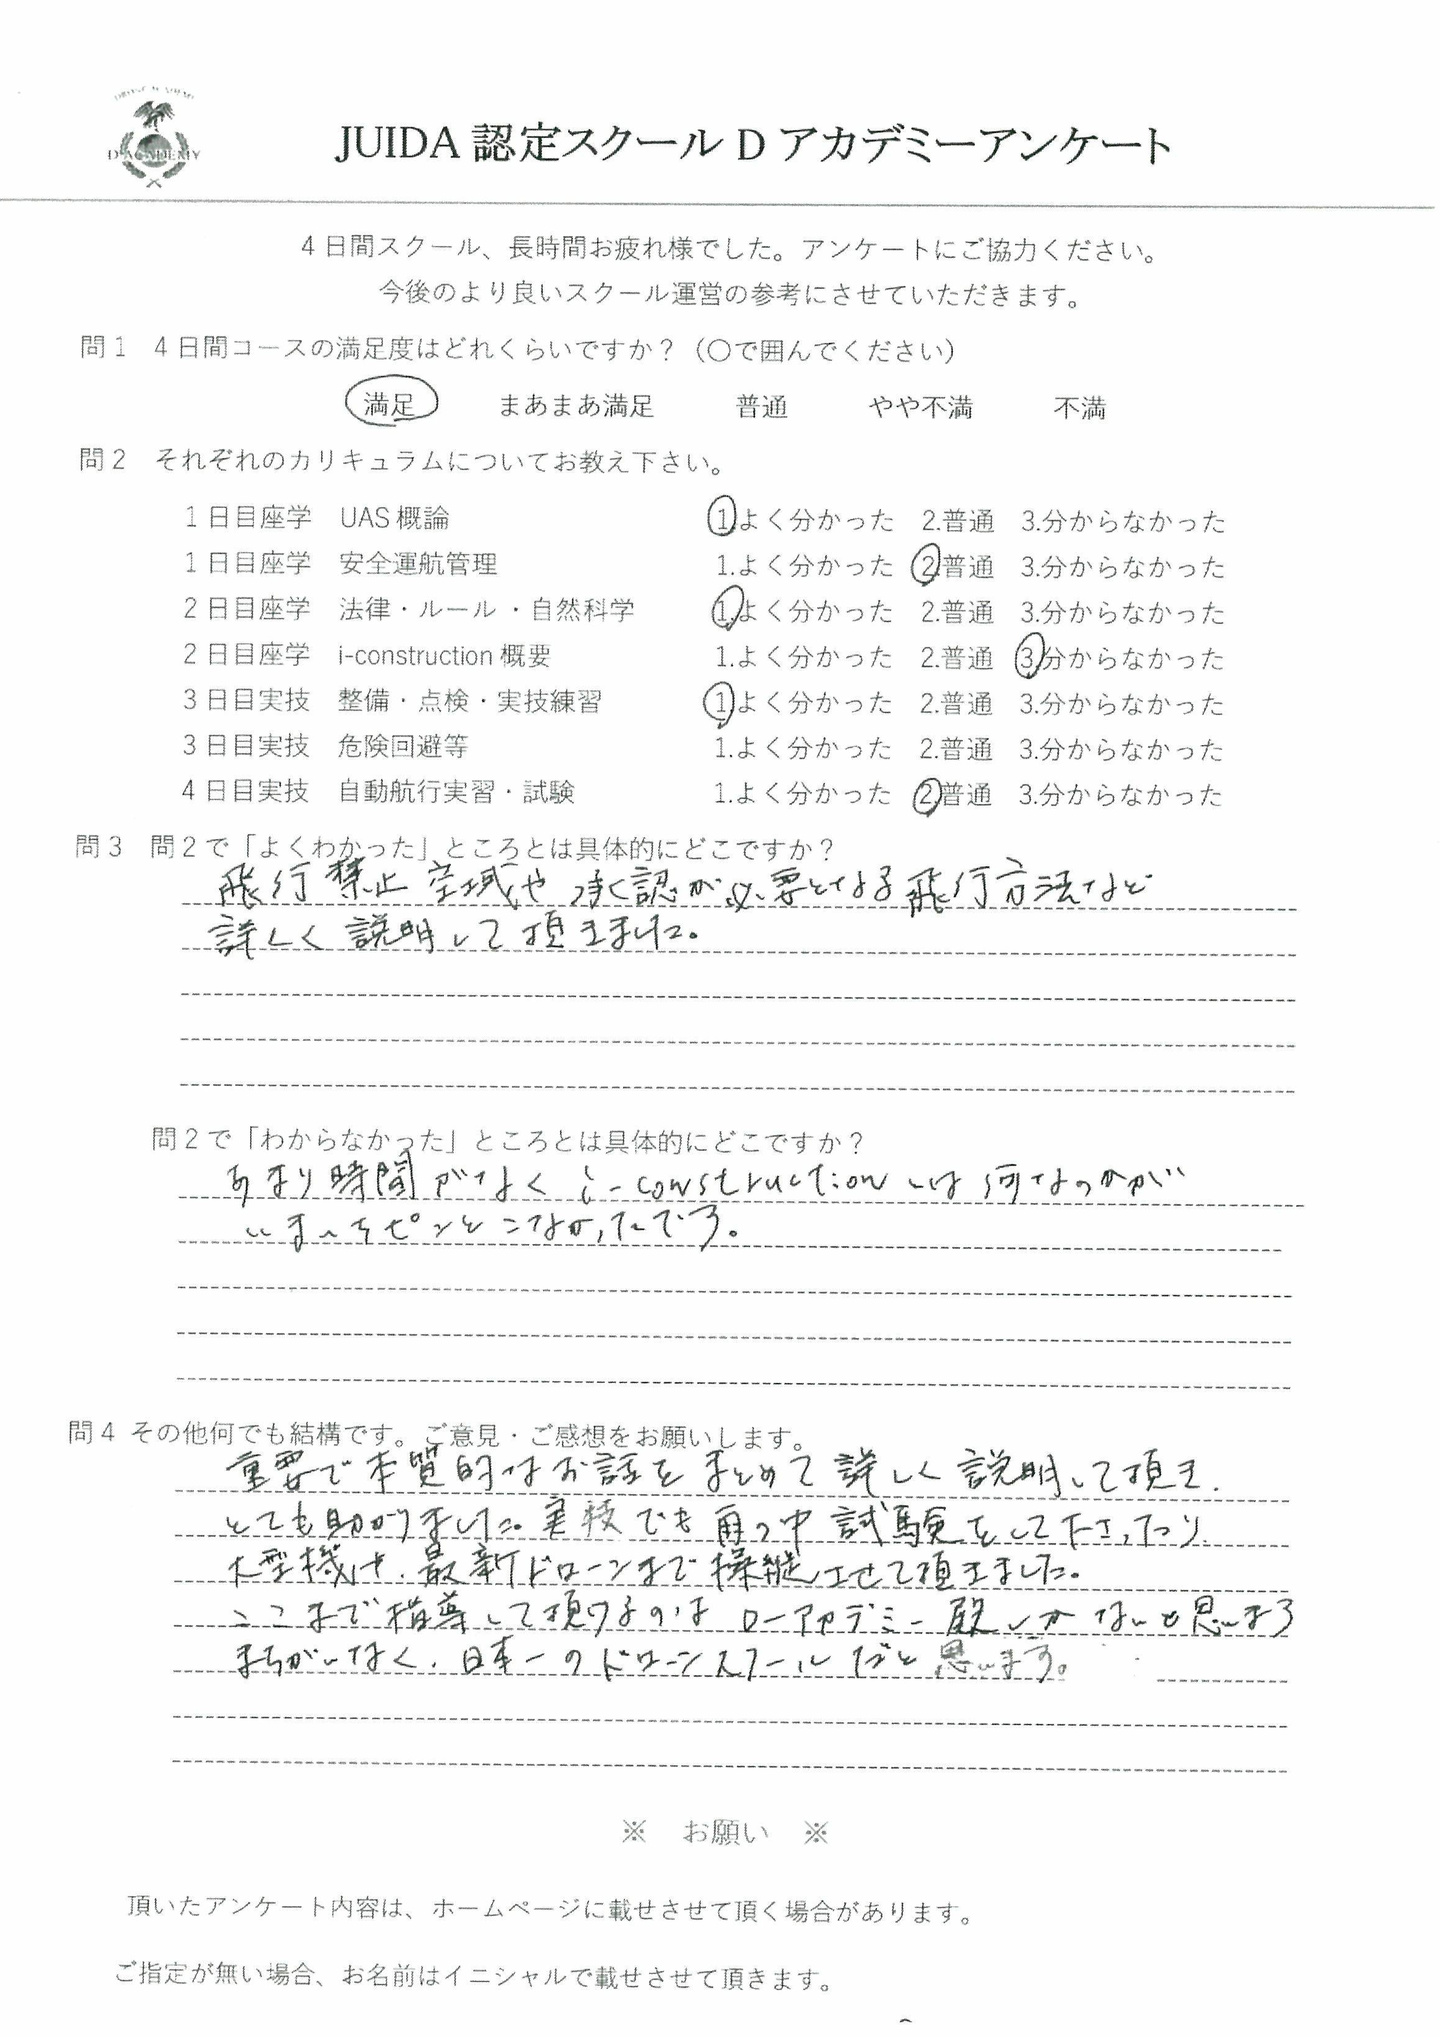 D ACADEMY
JUIDA 認定スクール D アカデミーアンケート
4日間スクール、長時間お疲れ様でした。アンケートにご協力ください。
今後のより良いスクール運営の参考にさせていただきます。
問1 4日間コースの満足度はどれくらいですか?(〇で囲んでください)
満足 まあまあ満足 普通 やや不満 不満
問2 それぞれのカリキュラムについてお教え下さい。
1日目座学 UAS概論 1.よく分かった 2.普通 3.分からなかった
1日目座学 安全運航管理 1.よく分かった 2.普通 3.分からなかった
2日目座学 法律・ルール・自然科学 1.よく分かった 2.普通 3.分からなかった
2日目座学 i-construction概要 1.よく分かった 2.普通 3.分からなかった
3日目実技 整備・点検・実技練習 1.よく分かった 2.普通 3.分からなかった
3日目実技 危険回避等 1.よく分かった 2.普通 3.分からなかった
4日目実技 自動航行実習・試験 1.よく分かった 2.普通 3.分からなかった
問3 問2で「よくわかった」ところとは具体的にどこですか?
飛行禁止空域や承認が必要となる飛行方法など
詳しく説明して頂きました。
問2で「わからなかった」ところとは具体的にどこですか?
あまり時間がなく i-constructionは何なのかが
いまいちピンとこなかったです。
問4 その他何でも結構です。ご意見・ご感想をお願いします。
重要で本質的なお話をまとめて詳しく説明して頂き、
とても助かりました。実技でも雨の中試験をして下さったり、
大型機や、最新ドローンまで操縦させて頂きました。
ここまで指導して頂けるのは Dーアカデミー殿しかないと思います
まちがいなく、日本一のドローンスクールだと思います。
※ お願い ※
頂いたアンケート内容は、ホームページに載せさせて頂く場合があります。
ご指定が無い場合、お名前はイニシャルで載せさせて頂きます。